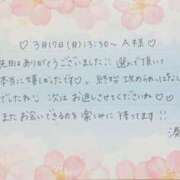 ♡3月17日(月)13:30〜 A様♡
先日はありがとうございました!! 選んで頂いて
本当に嬉しかったです♡。終始 攻められっぱなし
でしたね💧 次はお返しさせてくださいね
またお会いできるのを楽しみに待ってます!!
湊